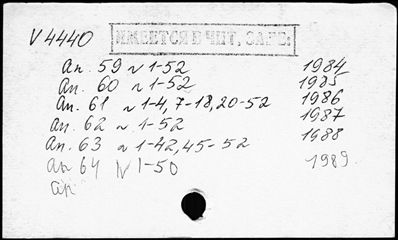 V 4440
ИМЕЕТСЯ В ЧИТ. ЗАЛЕ:
An. 59 N 1-52 1984
An. 60 N 1-52 1985
An. 61 N 1-4, 7-18, 20-52 1986
An. 62 N 1-52 1987
An. 63 N 1-42, 45-52 1988
An 64 N 1-50 1989.
An